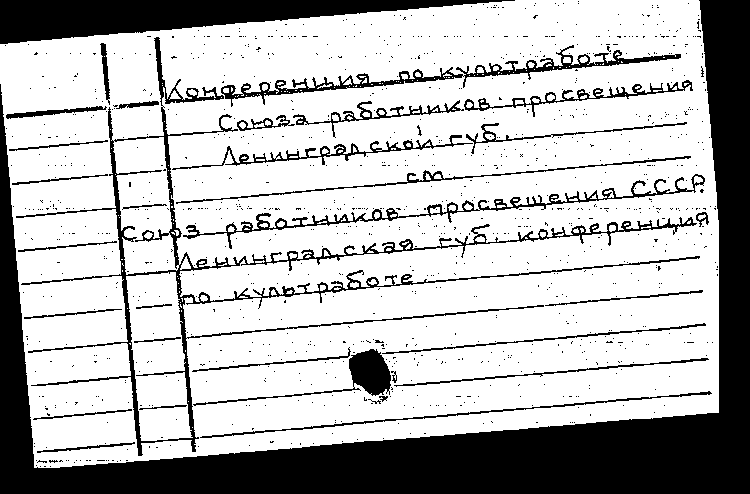 Конференция по культработе
Союза работников просвещения
Ленинградской губ.
см
Союз работников просвещения СССР.
Ленинградская губ. конференция
по культработе.